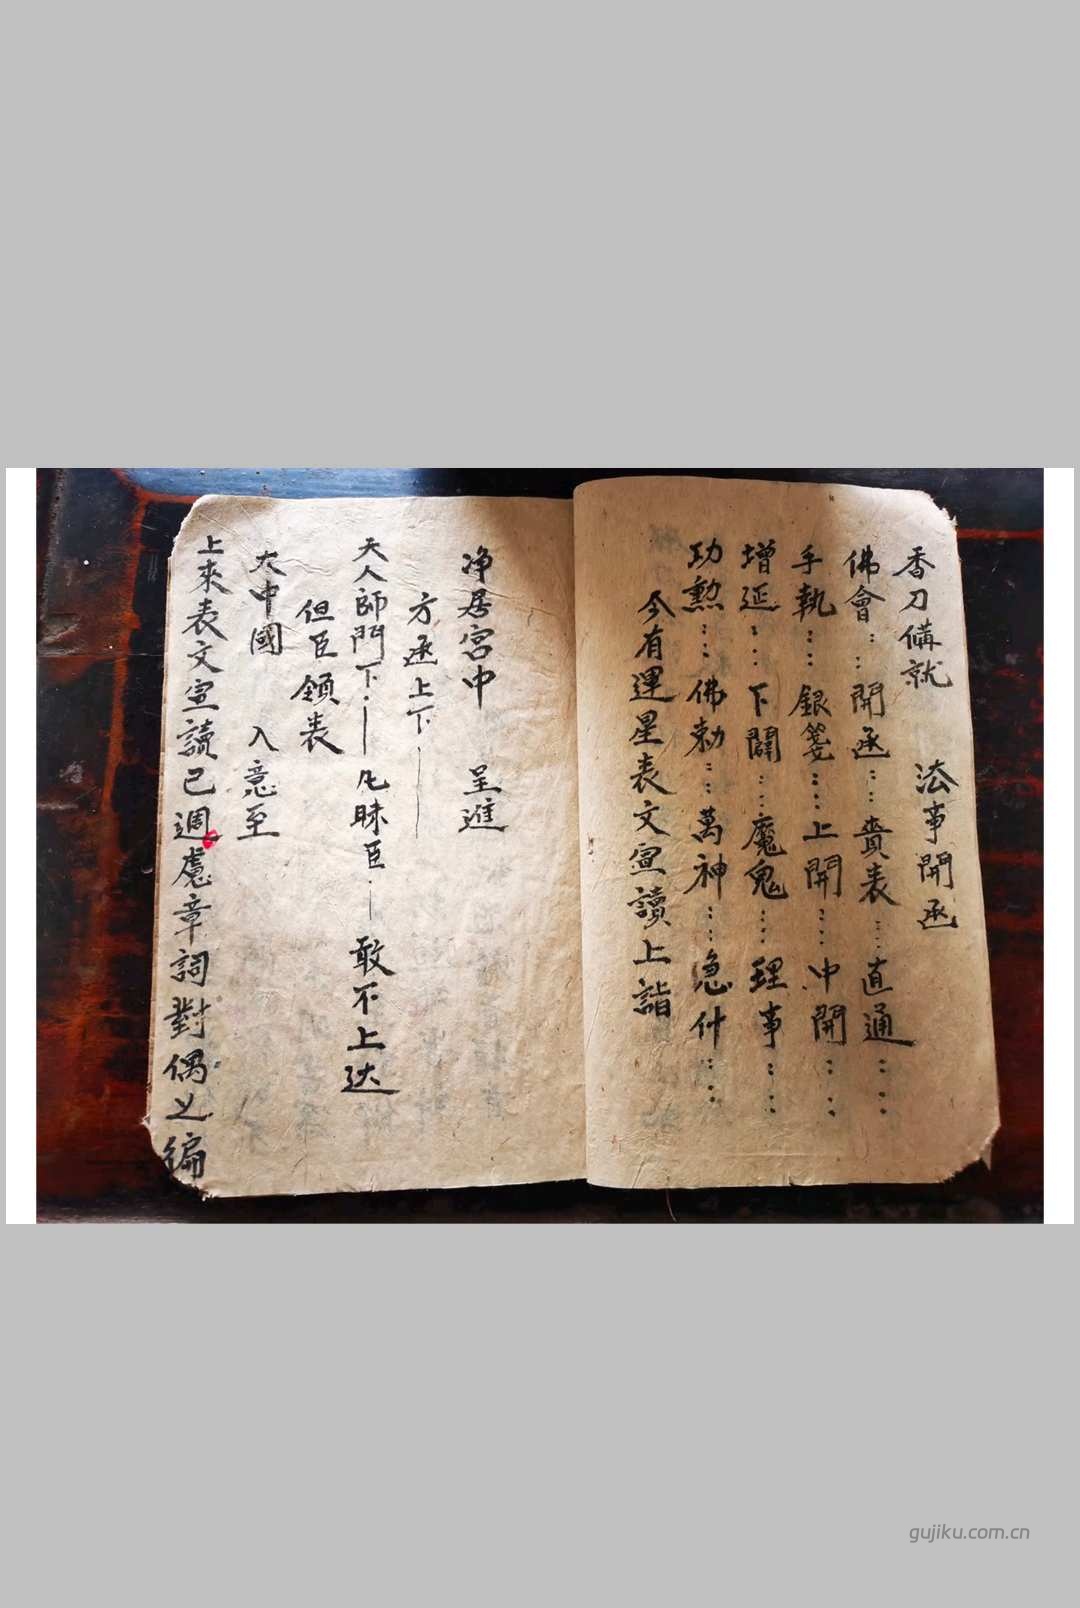 香刀備就　法事開函
佛會：：開函：：賫表：：直通：：：
手執：：銀箋：：上開：：中開：：：
增延：：下闢：：魔鬼：：理事：：：
功勲：：佛勅：：萬神：：急什：：
今有運星表文宣讀上詣
净居宮中　呈進
方函上下——
天人師門下：——凡昧臣：—敢不上达
但臣領表
大中國　入意至
上來表文宣讀已週慮章詞對偶之编
gujiku.com.cn